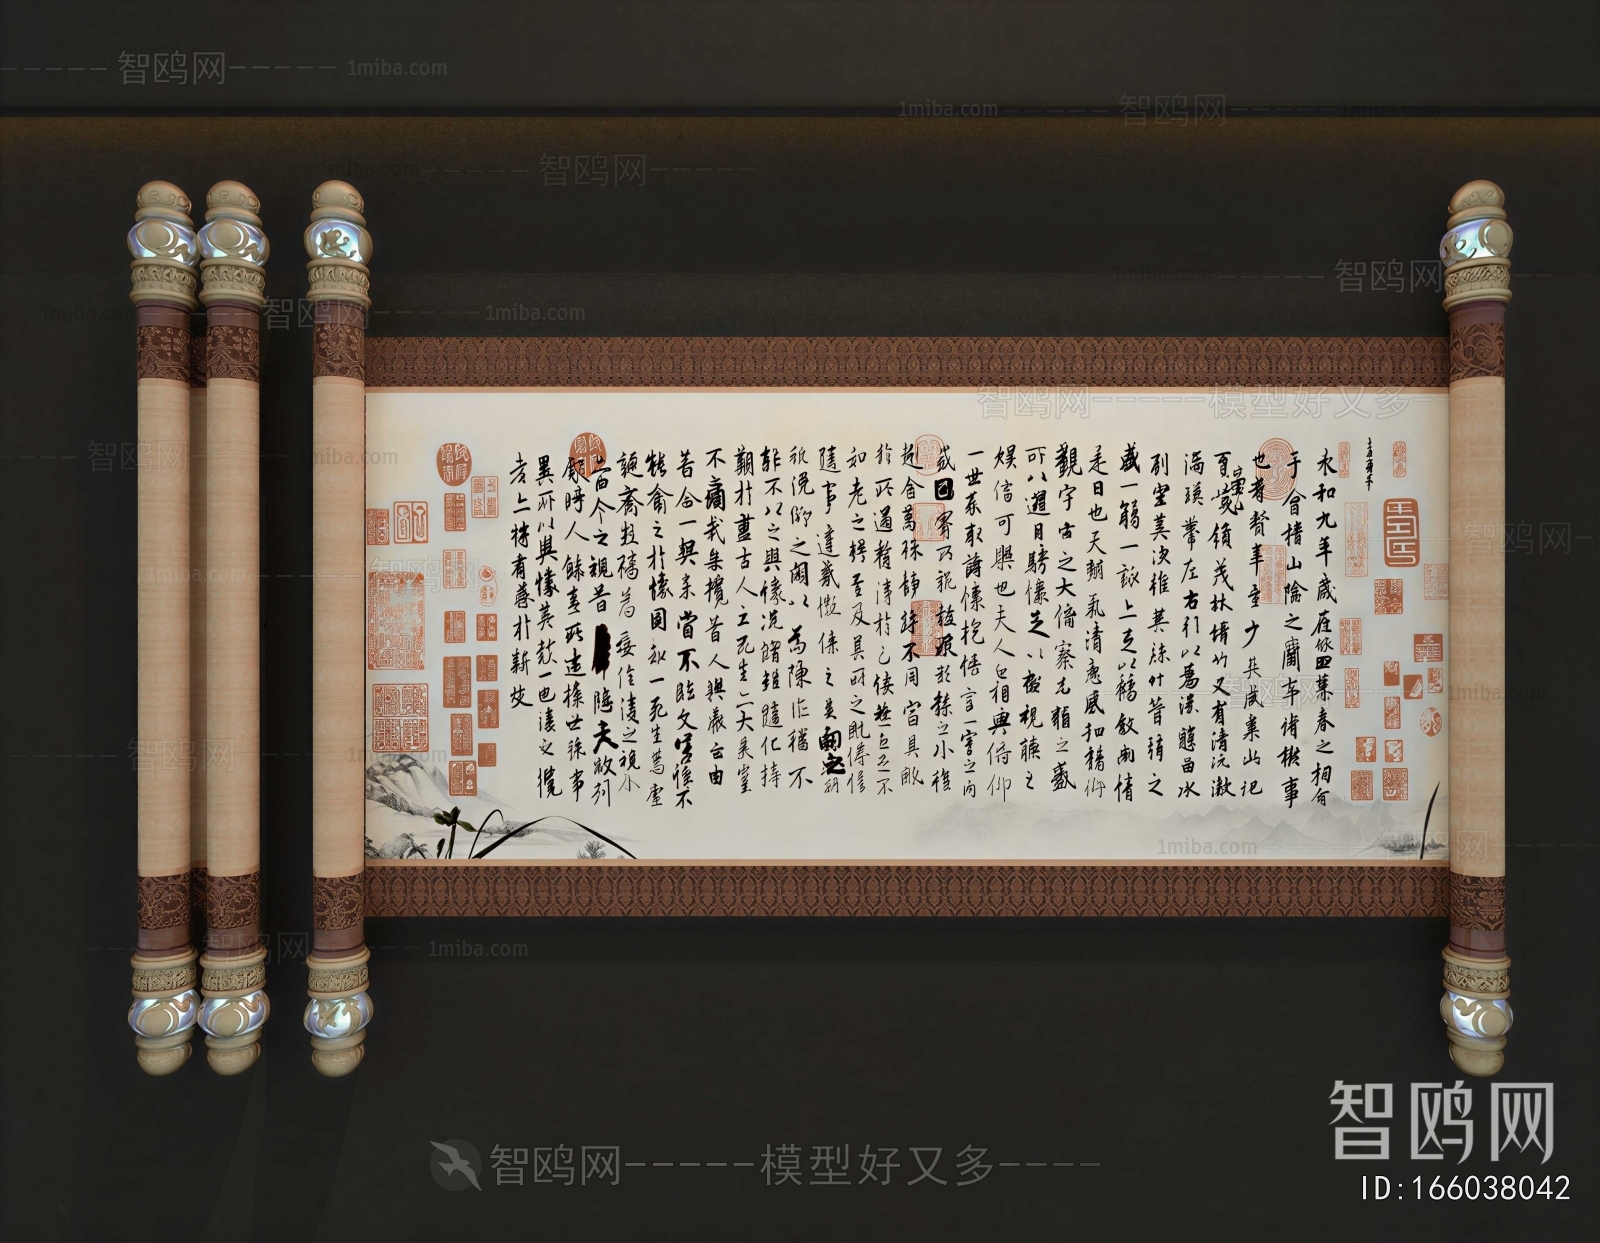 永和九年歲在癸丑暮春之初會
于會稽山陰之蘭亭脩禊事
也群賢畢至少長咸集此地
有崇山峻領茂林脩竹又有清流激
湍暎帶左右引以為流觴曲水
列坐其次雖無絲竹管弦之
盛一觴一詠亦足以暢敘幽情
是日也天朗氣清惠風和暢仰
觀宇宙之大俯察品類之盛
所以遊目騁懷足以極視聽之
娛信可樂也夫人之相與俯仰
一世或取諸懷抱悟言一室之內
或因寄所託放浪形骸之外雖
趣舍萬殊靜躁不同當其欣
於所遇蹔得於己怏然自足不
知老之將至及其所之既惓情
隨事遷感慨係之矣向之所
欣俛仰之閒以為陳迹猶不
能不以之興懷況脩短隨化終
期於盡古人云死生亦大矣豈
不痛哉每攬昔人興感之由
若合一契未嘗不臨文嗟悼不
能喻之於懷固知一死生為虛
誕齊彭殤為妄作後之視今
亦由今之視昔悲夫故列
敘時人錄其所述雖世殊事
異所以興懷其致一也後之攬
者亦將有感於斯文
智鸥网-----模型好又多----
智鸥网
ID:166038042